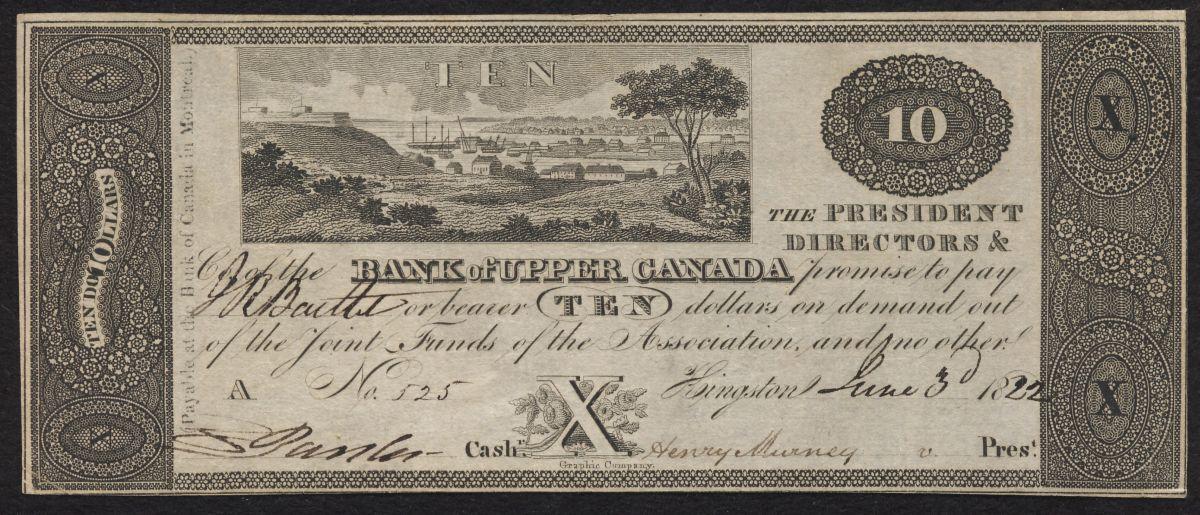 TEN
10
THE PRESIDENT
DIRECTORS &
Co. of the BANK of UPPER CANADA promise to pay
or bearer TEN dollars on demand out
of the Joint Funds of the Association, and no other
A No. 525 Kingston June 3d 1822
Cashr. X Henry Murney v. Prest.
Graphic Company.
X
TEN DOLLARS
10
X
Payable at the Bank of Canada in Montreal,
X
X